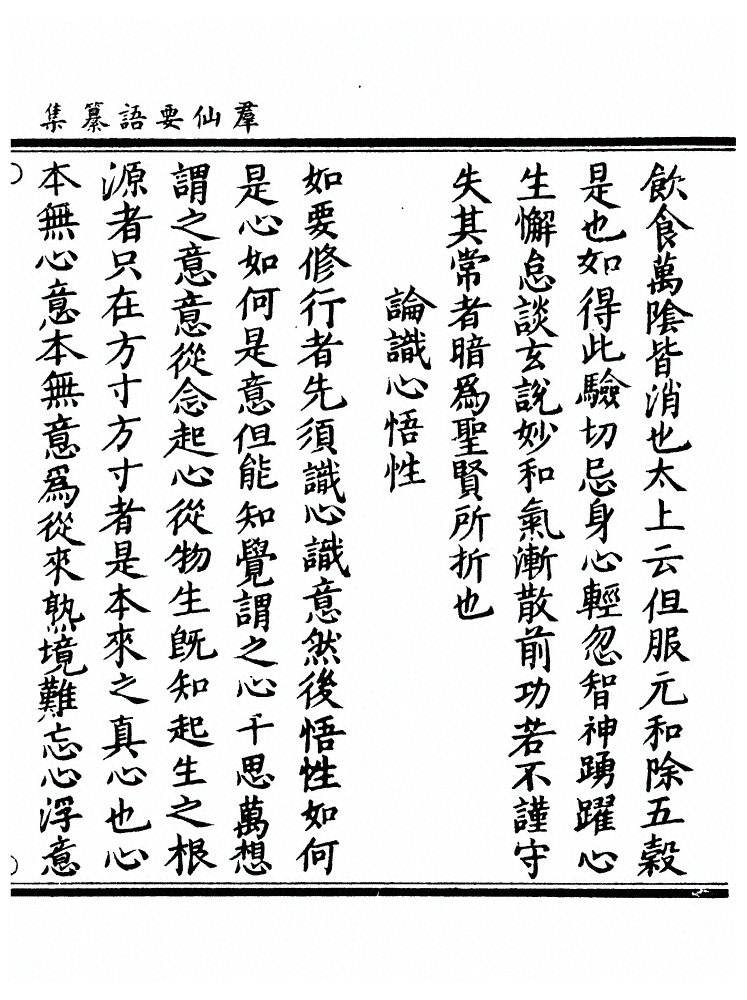 羣仙要語纂集
飲食萬陰皆消也太上云但服元和除五糓
是也如得此驗切忌身心輕忽智神踴躍心
生懈怠談玄說妙和氣漸散前功若不謹守
失其常者暗爲聖賢所折也
論識心悟性
如要修行者先須識心識意然後悟性如何
是心如何是意但能知覺謂之心千思萬想
謂之意意從念起心從物生旣知起生之根
源者只在方寸方寸者是本來之真心也心
本無心意本無意爲從來熟境難忘心浮意